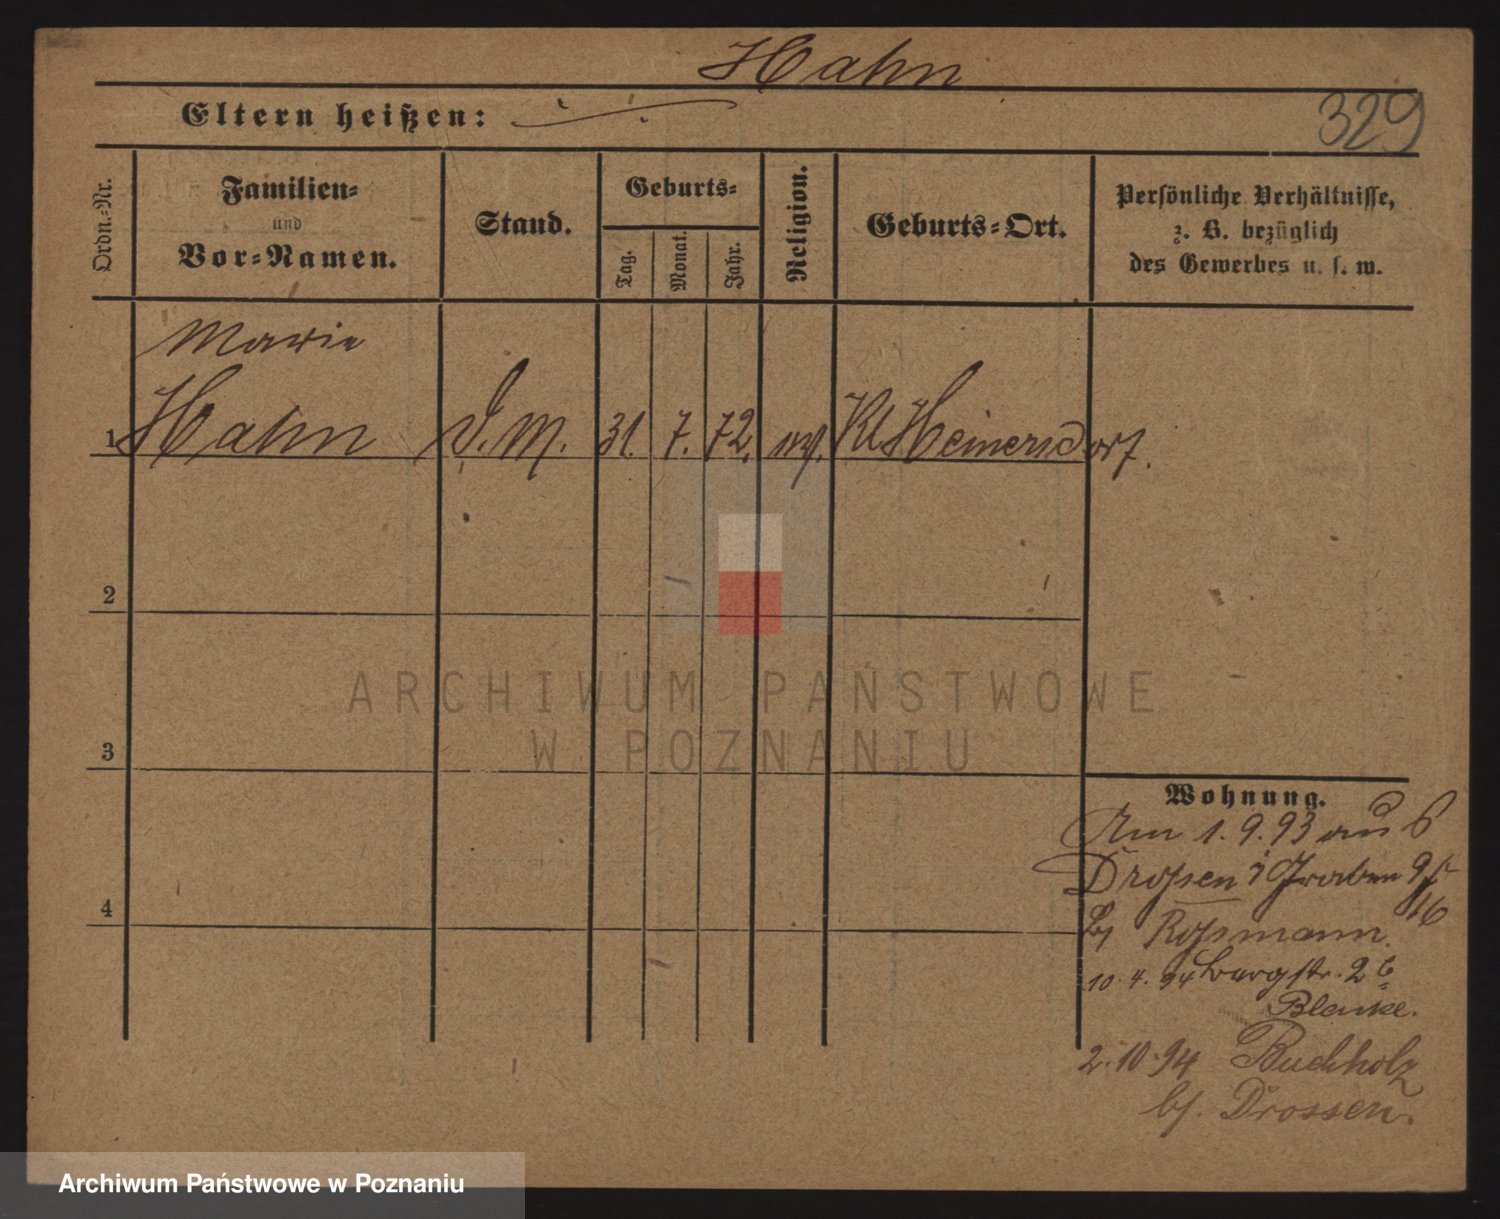 Hahn
Eltern heißen:
329
Ordn.-Nr.
Familien-
und
Vor-Namen.
Stand.
Geburts-
Tag.
Monat.
Jahr.
Religion.
Geburts-Ort.
Persönliche Verhältnisse,
z. B. bezüglich
des Gewerbes u. s. w.
Marie
1 Hahn D. M. 31. 7. 72. ev. Kl Heinersdorf.
2
3
4
ARCHIWUM PAŃSTWOWE
W POZNANIU
Wohnung.
Am 1.9.93 aus
Drossen Graben 9
16
Rossmann.
10.4.94 2
Blanke.
2.10.94 Buchholz
b/. Drossen.
Archiwum Państwowe w Poznaniu